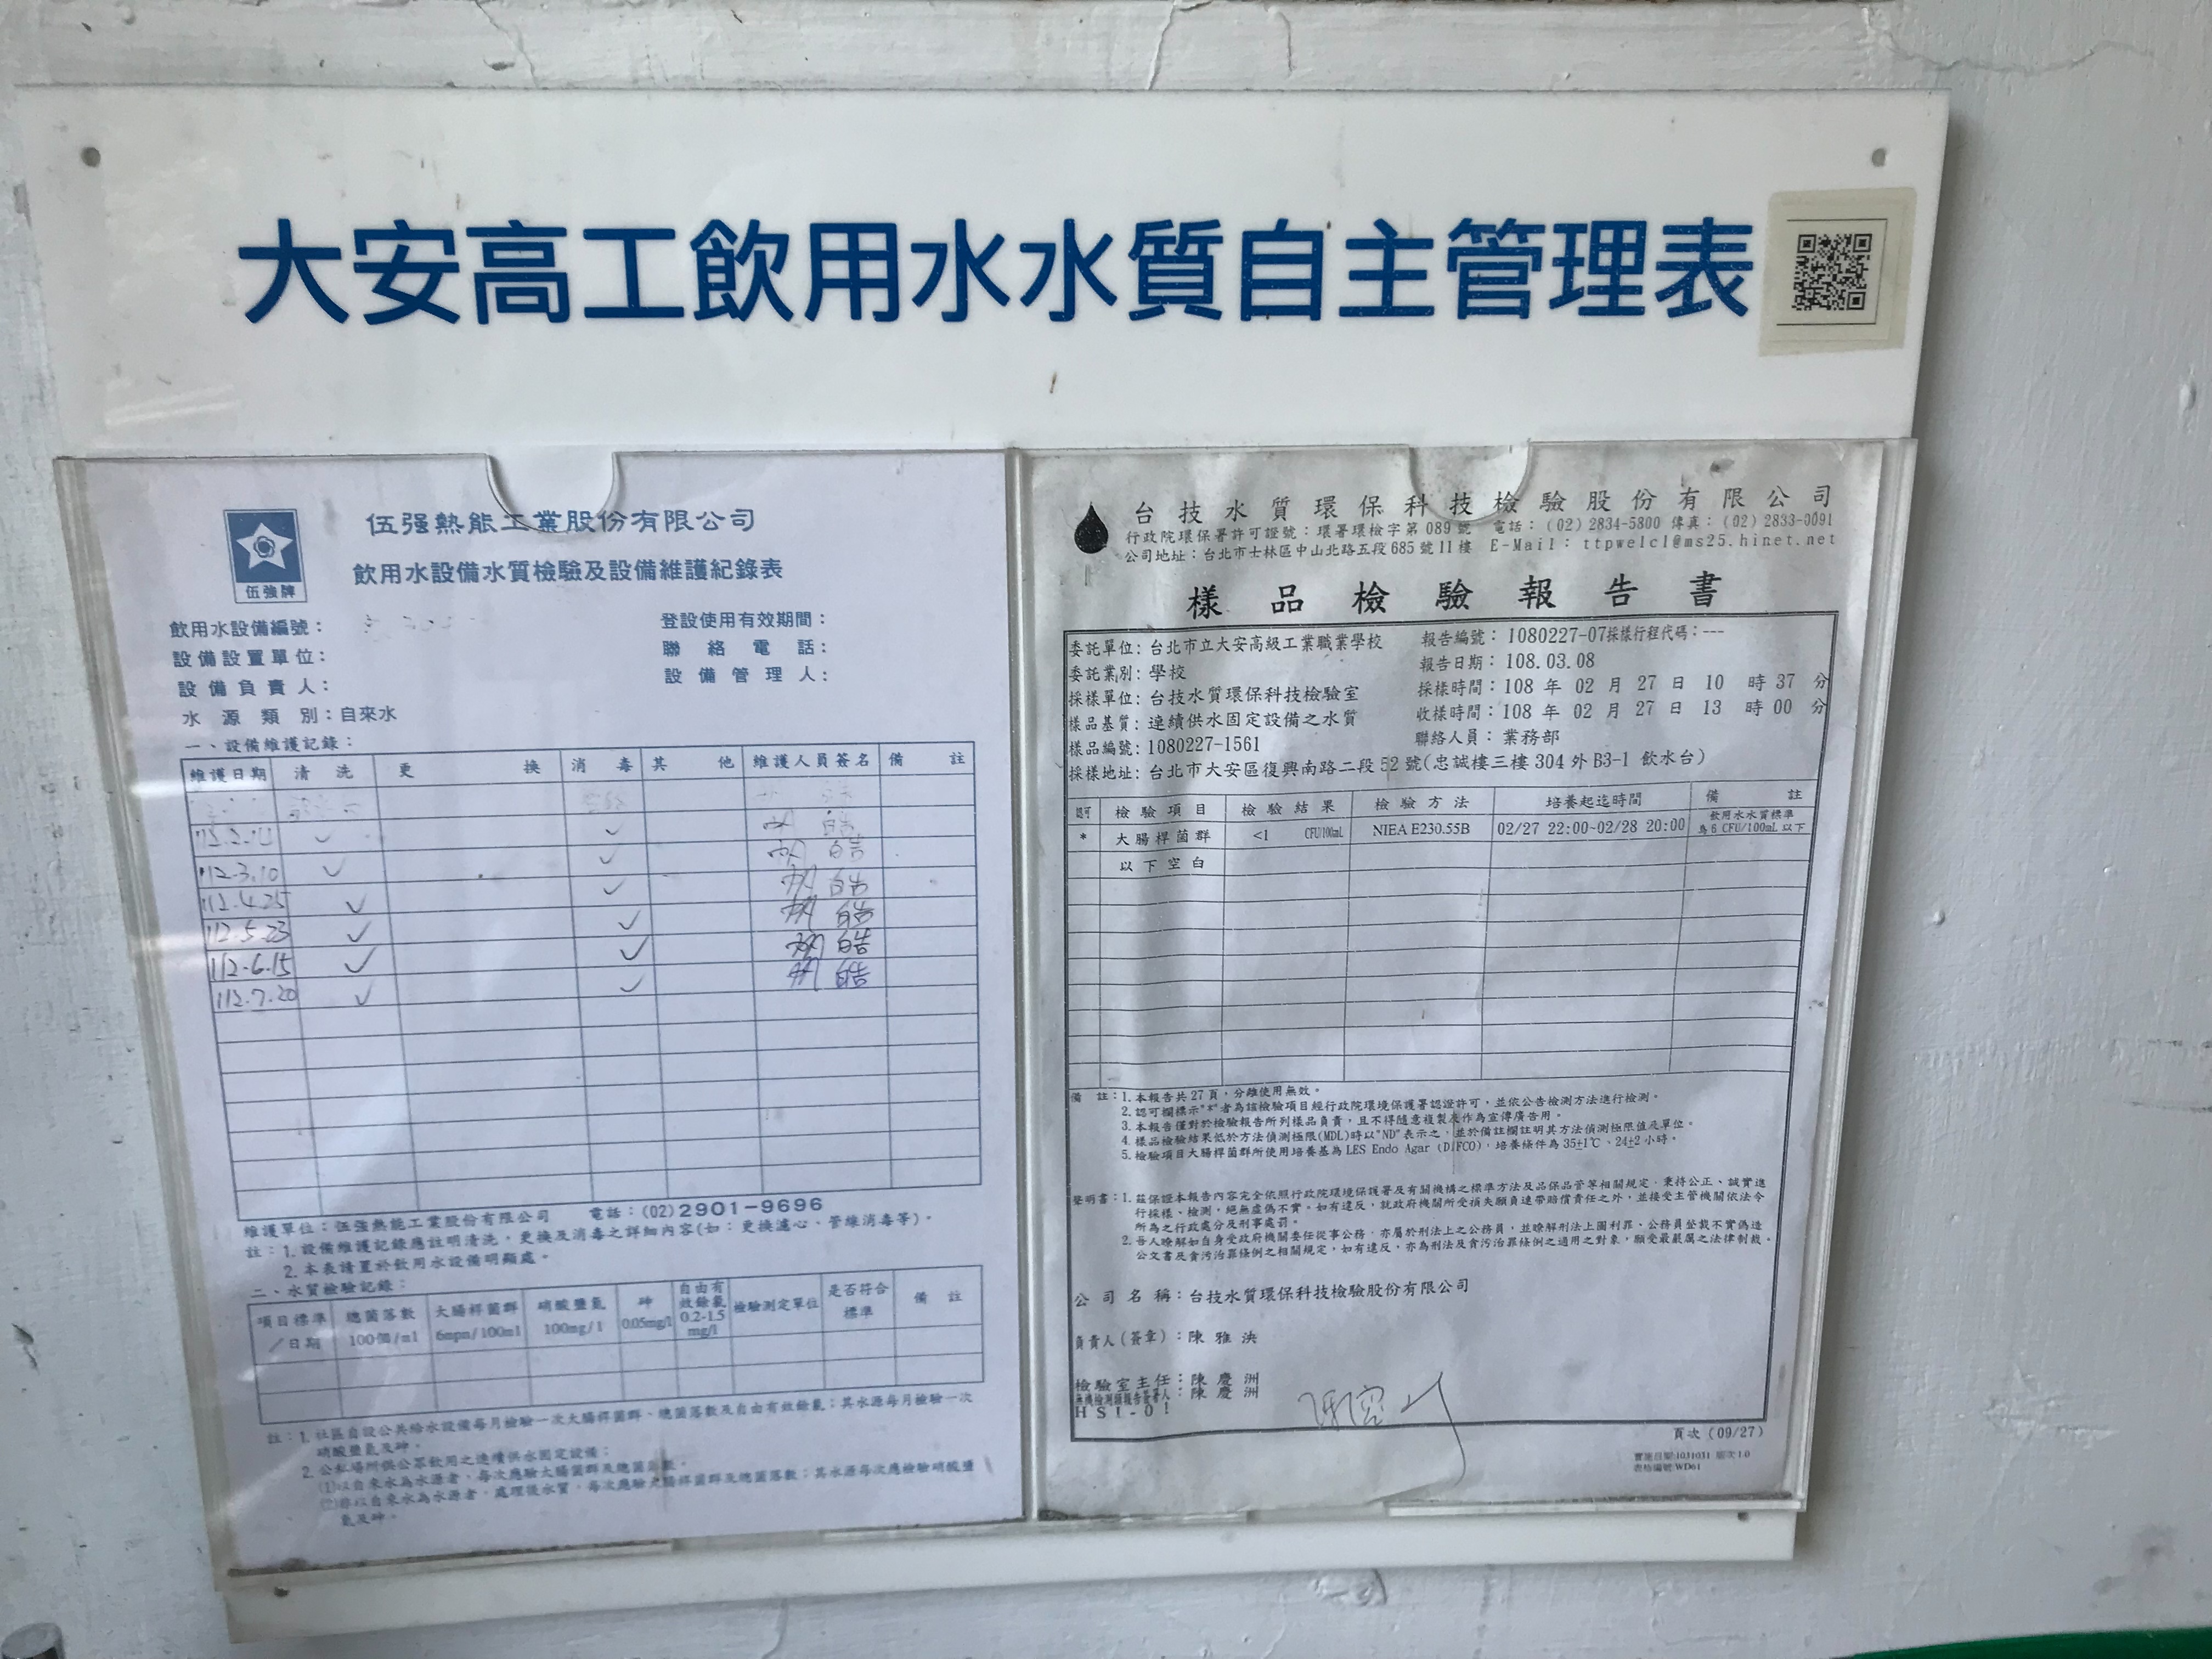 大安高工飲用水水質自主管理表
伍强熱能工業股份有限公司
伍強牌
飲用水設備水質檢驗及設備維護紀錄表
飲用水設備編號：
登設使用有效期間：
設備設置單位：
聯絡電話：
設備負責人：
設備管理人：
水源類別：自來水
一、設備維護記錄：
維護日期 清洗 更換 消毒 其他 維護人員簽名 備註
✓ ✓
112.3.10 ✓ ✓
112.4.25 ✓ ✓
112.5.23 ✓ ✓
112.6.15 ✓ ✓
112.7.20 ✓ ✓
維護單位：伍强熱能工業股份有限公司 電話：(02)2901-9696
註：1. 設備維護記錄應註明清洗，更換及消毒之詳細內容(如：更換濾心、管線消毒等)。
2. 本表請置於飲用水設備明顯處。
二、水質檢驗記錄：
項目標準／日期 總菌落數 100個/ml 大腸桿菌群 6mpn/100ml 硝酸鹽氮 100mg/l 砷 0.05mg/l 自由有效餘氯 0.2-1.5 mg/l 檢驗測定單位 是否符合標準 備註
註：1. 社區自設公共給水設備每月檢驗一次大腸桿菌群、總菌落數及自由有效餘氯；其水源每月檢驗一次
硝酸鹽氮及砷。
2. 公私場所供公眾飲用之連續供水固定設備：
(1)以自來水為水源者，每次應驗大腸菌群及總菌落數。
(2)非以自來水為水源者，處理後水質，每次應驗大腸桿菌群及總菌落數；其水源每次應檢驗硝酸鹽
氮及砷。
台技水質環保科技檢驗股份有限公司
行政院環保署許可證號：環署環檢字第089號 電話：(02)2834-5800 傳真：(02)2833-0091
公司地址：台北市士林區中山北路五段685號11樓 E-Mail： ttpwelcl@ms25.hinet.net
樣品檢驗報告書
委託單位：台北市立大安高級工業職業學校
報告編號：1080227-07採樣行程代碼：---
委託業別：學校
報告日期：108.03.08
採樣單位：台技水質環保科技檢驗室
採樣時間：108 年 02 月 27 日 10 時 37 分
樣品基質：連續供水固定設備之水質
收樣時間：108 年 02 月 27 日 13 時 00 分
樣品編號：1080227-1561
聯絡人員：業務部
採樣地址：台北市大安區復興南路二段52號(忠誠樓三樓304外B3-1飲水台)
認可 檢驗項目 檢驗結果 檢驗方法 培養起迄時間 備註
* 大腸桿菌群 <1 CFU/100mL NIEA E230.55B 02/27 22:00~02/28 20:00 飲用水水質標準為6 CFU/100mL以下
以下空白
備註：1. 本報告共27頁，分離使用無效。
2. 認可欄標示"*"者為該檢驗項目經行政院環境保護署認證許可，並依公告檢測方法進行檢測。
3. 本報告僅對於檢驗報告所列樣品負責，且不得隨意複製及作為宣傳廣告用。
4. 樣品檢驗結果低於方法偵測極限(MDL)時以"ND"表示之，並於備註欄註明其方法偵測極限值及單位。
5. 檢驗項目大腸桿菌群所使用培養基為LES Endo Agar (DIFCO)，培養條件為35±1℃、24±2小時。
聲明書：1. 茲保證本報告內容完全依照行政院環境保護署及有關機構之標準方法及品保品管等相關規定，秉持公正、誠實進
行採樣、檢測，絕無虛偽不實。如有違反，就政府機關所受損失願負連帶賠償責任之外，並接受主管機關依法令
所為之行政處分及刑事處罰。
2. 吾人瞭解如自身受政府機關委任從事公務，亦屬於刑法上之公務員，並瞭解刑法上圖利罪、公務員登載不實偽造
公文書及貪污治罪條例之相關規定，如有違反，亦為刑法及貪污治罪條例之適用之對象，願受最嚴厲之法律制裁。
公司名稱：台技水質環保科技檢驗股份有限公司
負責人(簽章)：陳雅泱
檢驗室主任：陳慶洲
無機檢測類報告簽署人：陳慶洲
HSI-01
頁次(09/27)
實施日期:1031031 版次1.0
表格編號:WD61